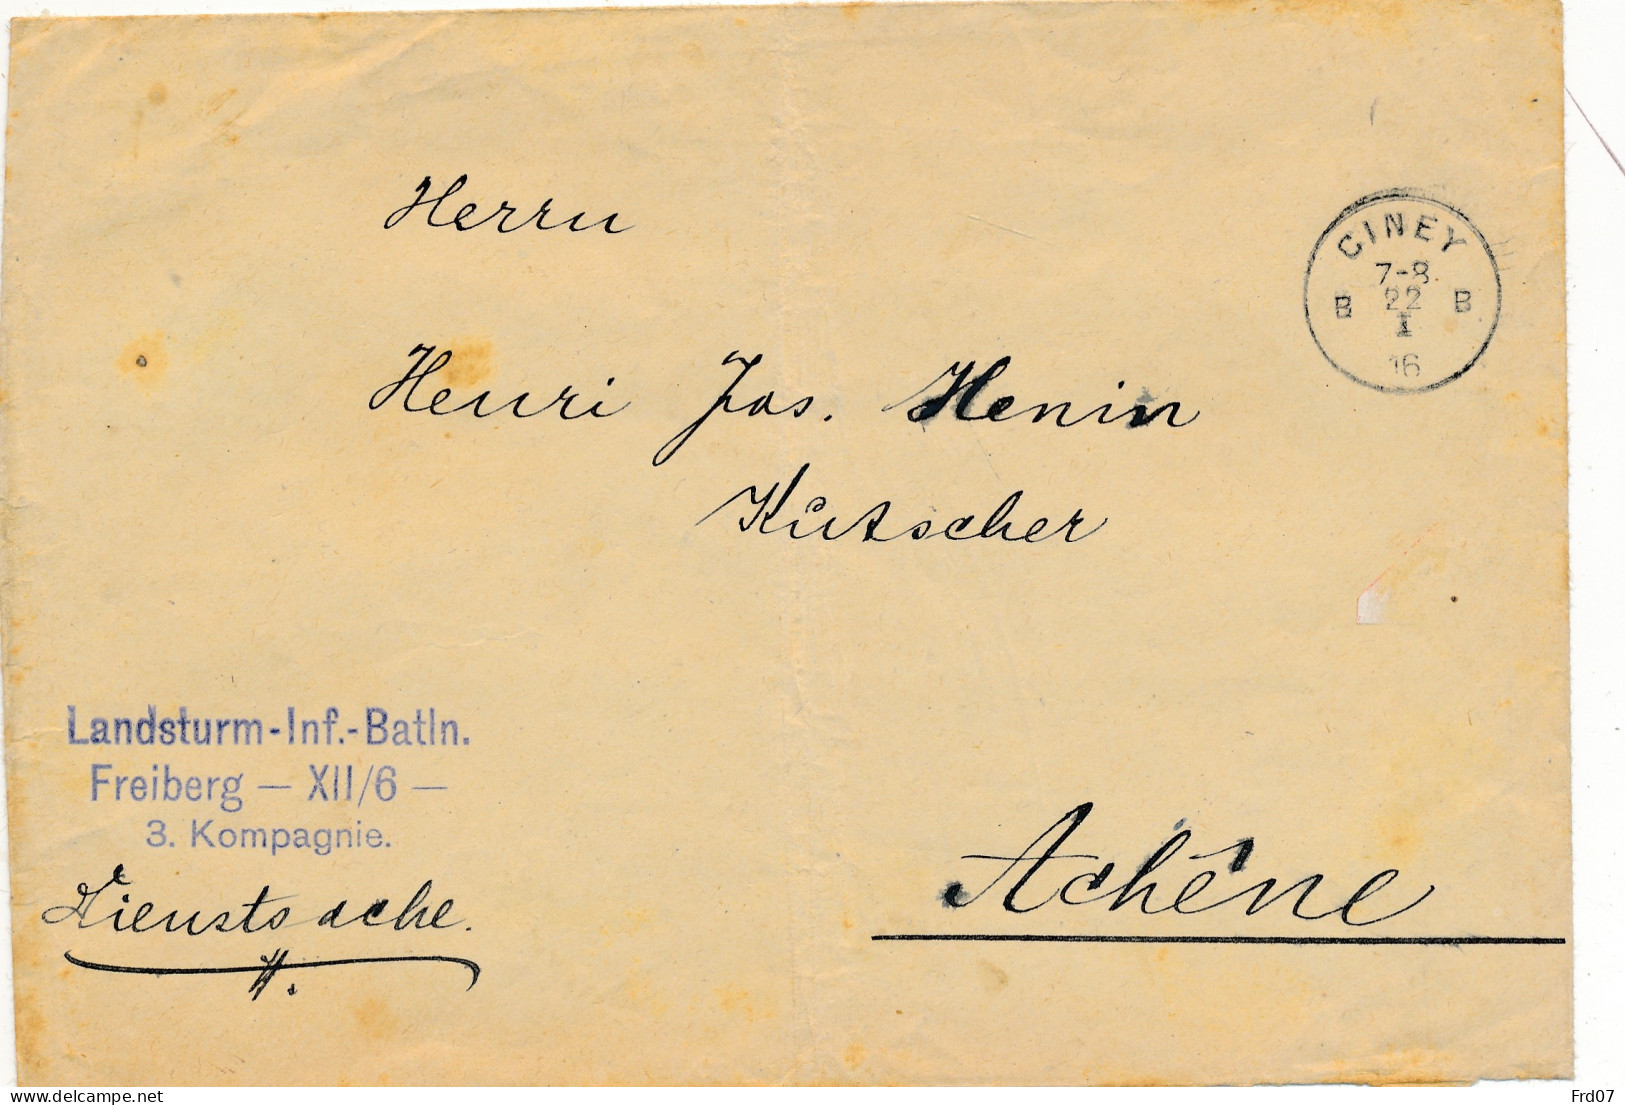 Herrn
Henri Jos. Henin
Kutscher
CINEY
7-8.
B 22 B
I
16
Landsturm-Inf.-Batln.
Freiberg — XII/6 —
3. Kompagnie.
Dienstsache.
Achêne
Frd07